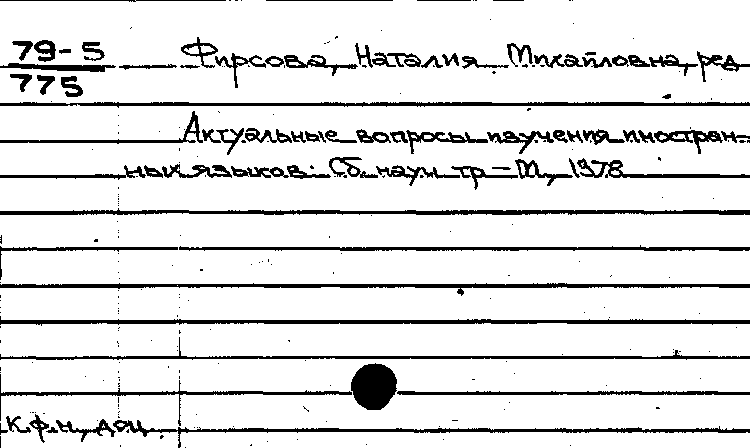 79-5
775
Фирсова, Наталия Михайловна, ред
Актуальные вопросы изучения иностран-
ных языков: Сб. науч тр - М, 1978
к.ф.н, доц.